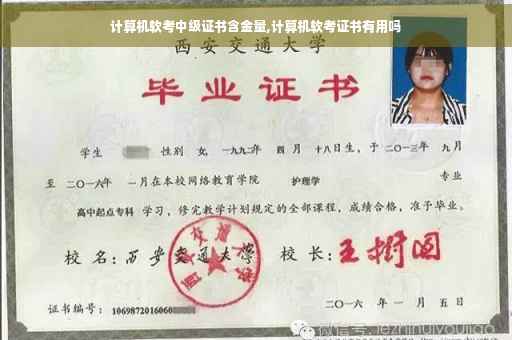 计算机软考中级证书含金量,计算机软考证书有用吗
西安交通大学
毕业证书
学生 性别 女, 一九九二年 四 月 十八日生, 于 二〇一三年 九月
至 二〇一六年 一月在本校网络教育学院 护理学 专业
高中起点专科 学习, 修完教学计划规定的全部课程, 成绩合格, 准予毕业。
校 名: 西安交通大学 校 长: 王树国
证书编号: 1069872016060
二〇一六 年 一 月 五 日
微信号: jezhihuiyoujiao